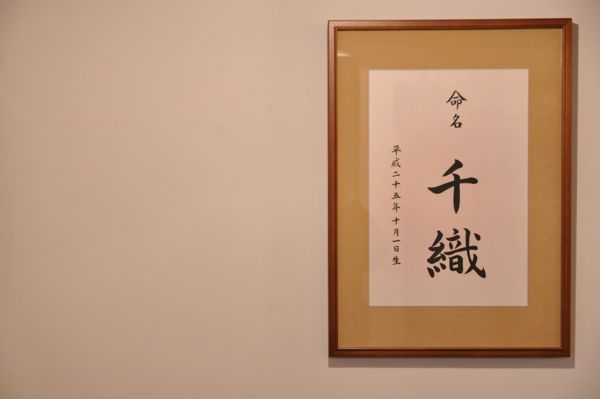 命名
千織
平成二十五年十月一日生